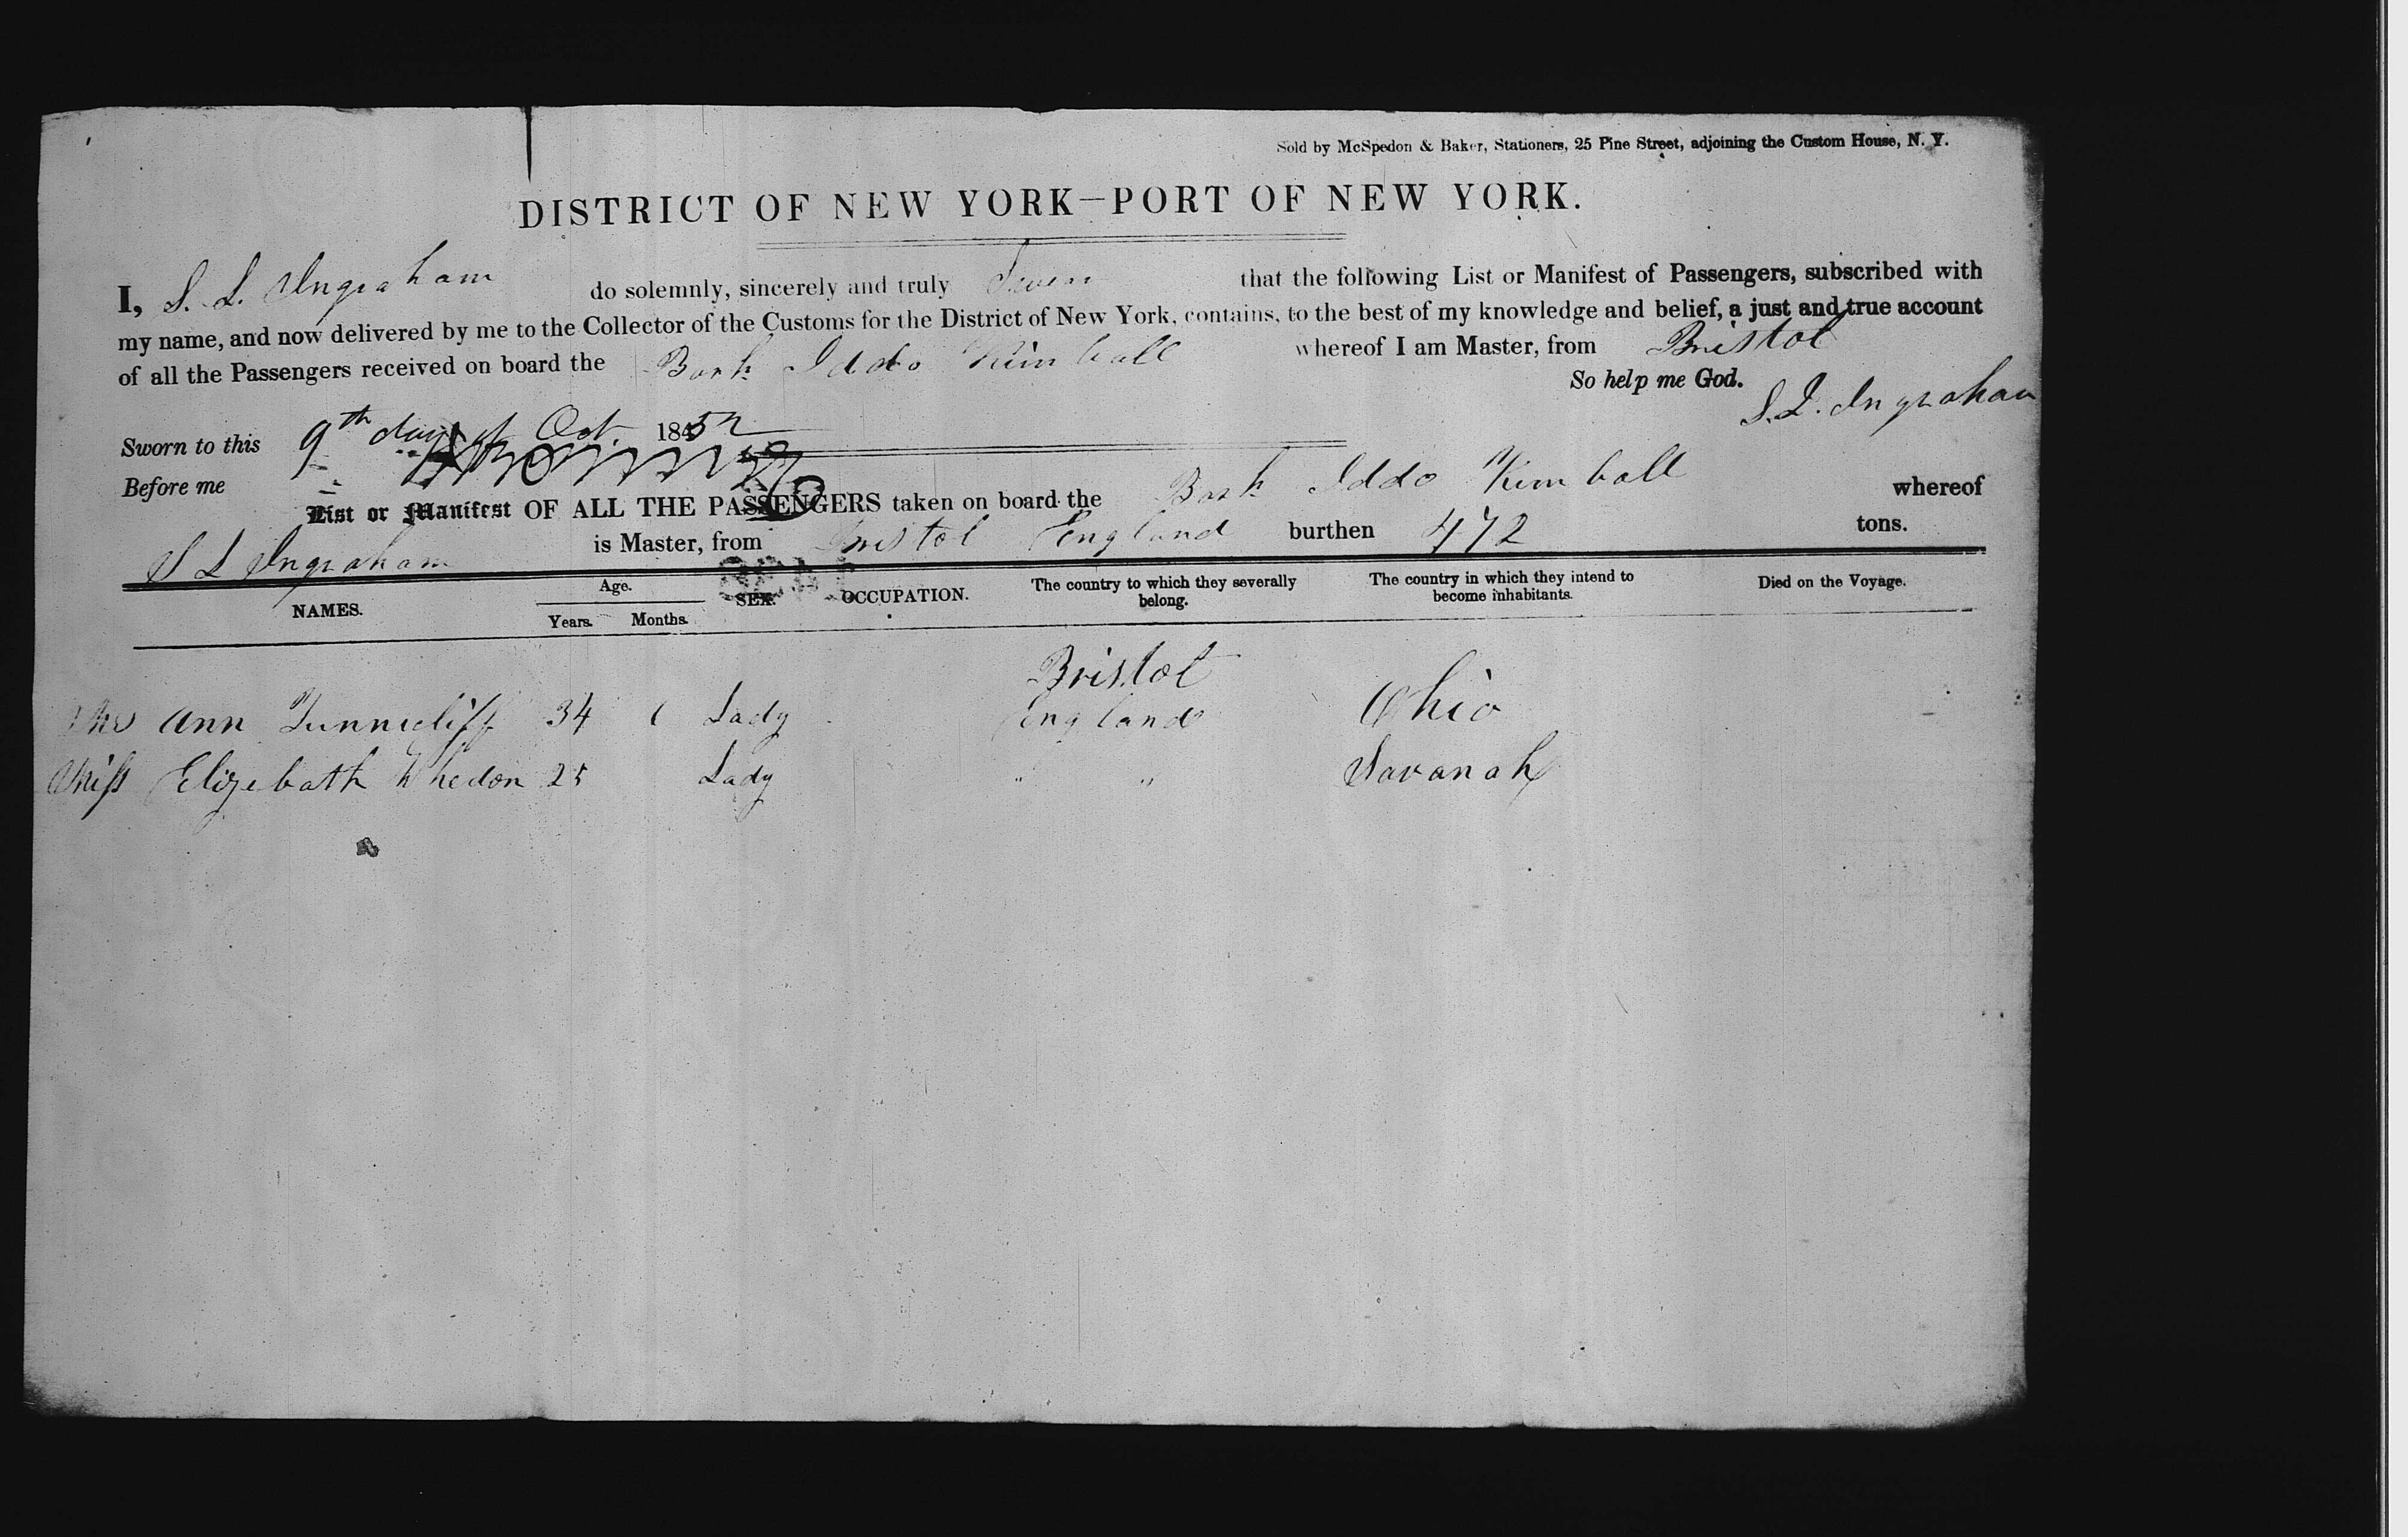 Sold by McSpedon & Baker, Stationers, 25 Pine Street, adjoining the Custom House, N. Y.
DISTRICT OF NEW YORK—PORT OF NEW YORK.
I, S. L. Ingraham do solemnly, sincerely and truly Swear that the following List or Manifest of Passengers, subscribed with
my name, and now delivered by me to the Collector of the Customs for the District of New York, contains, to the best of my knowledge and belief, a just and true account
of all the Passengers received on board the Bark Iddo Kimball whereof I am Master, from Bristol
So help me God.
S. L. Ingraham
Sworn to this 9th day of Oct. 1852
Before me
List or Manifest OF ALL THE PASSENGERS taken on board the Bark Iddo Kimball whereof
S L Ingraham is Master, from Bristol England burthen 472 tons.
NAMES. Age. Years. Months. SEX. OCCUPATION. The country to which they severally belong. The country in which they intend to become inhabitants. Died on the Voyage.
Bristol
Mrs Ann Tunnicliff 34 Lady England Ohio
Miss Elizebath Whedon 25 Lady " " Savanah